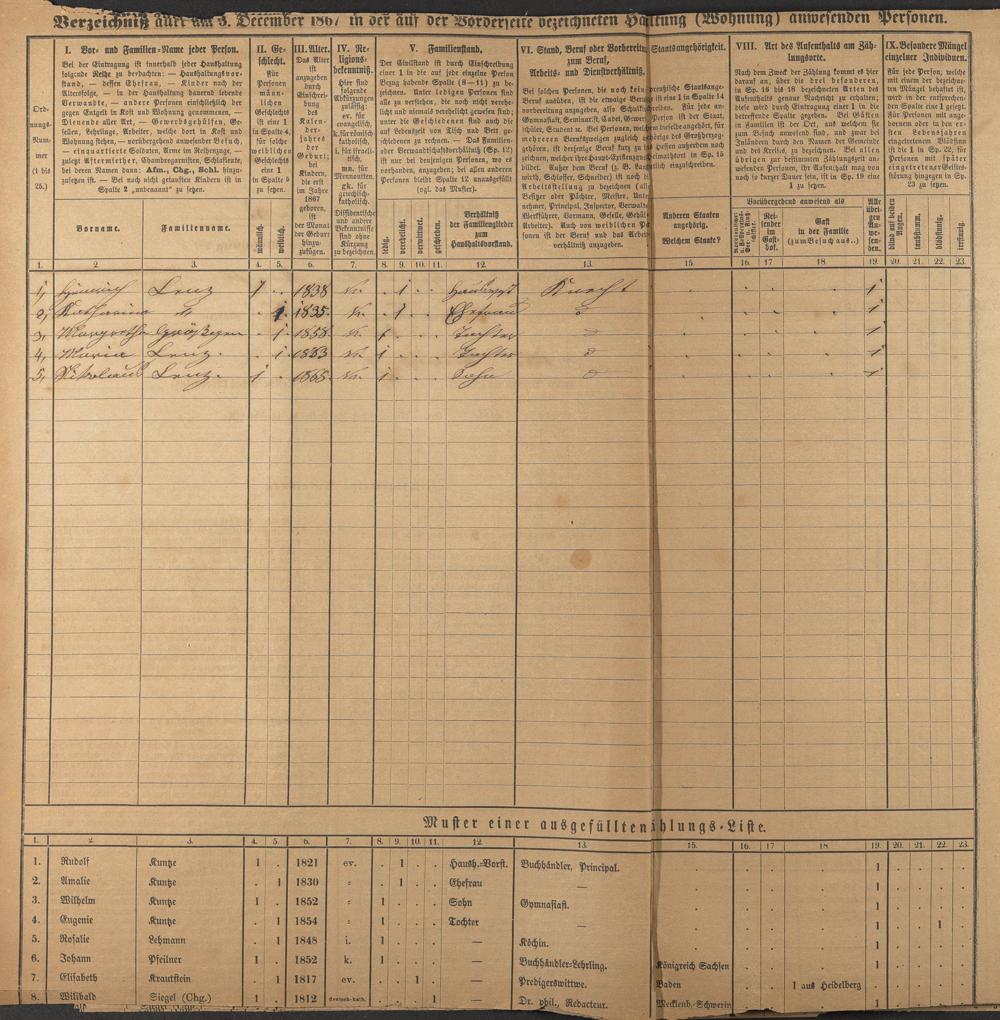 Verzeichniß aller am 3. December 1867 in der auf der Vorderseite bezeichneten Haltung (Wohnung) anwesenden Personen.
Ord-
nungs-
Num-
mer
(1 bis
25.)
I. Vor- und Familien-Name jeder Person.
Bei der Eintragung ist innerhalb jeder Haushaltung
folgende Reihe zu beobachten: — Haushaltungsvor-
stand, — dessen Ehefrau, — Kinder nach der
Altersfolge, — in der Haushaltung dauernd lebende
Verwandte, — andere Personen einschließlich der
gegen Entgelt in Kost und Wohnung genommenen, —
Dienende aller Art, — Gewerbsgehülfen, Ge-
sellen, Lehrlinge, Arbeiter, welche dort in Kost und
Wohnung stehen, — vorübergehend anwesender Besuch,
— einquartierte Soldaten, Arme im Reihenzuge, —
zuletzt Aftermiether, Chambregarnisten, Schlafleute,
bei deren Namen dann: Afm., Chg., Schl. hinzu-
zusetzen ist. — Bei noch nicht getauften Kindern ist in
Spalte 2 „unbenannt" zu setzen.
Vorname. Familienname.
II. Ge-
schlecht.
Für
Personen
männ-
lichen
Geschlechts
ist eine 1
in Spalte 4,
für solche
weiblichen
Geschlechts
eine 1
in Spalte 5
zu setzen.
männlich. weiblich.
III. Alter.
Das Alter
ist
anzugeben
durch
Einschrei-
bung
des
Kalen-
der-
jahres
der
Geburt;
bei
Kindern,
die erst
im Jahre
1867
geboren,
ist
der Monat
der Geburt
hinzu-
zufügen.
IV. Re-
ligions-
bekenntniß.
Hier sind
folgende
Abkürzungen
zulässig:
ev. für
evangelisch,
k. für römisch-
katholisch,
i. für israeli-
tisch,
mn. für
Mennoniten,
gk. für
griechisch-
katholisch.
Dissidentische
und andere
Bekenntnisse
sind ohne
Kürzung
zu bezeichnen.
V. Familienstand.
Der Civilstand ist durch Einschreibung
einer 1 in die auf jede einzelne Person
Bezug habende Spalte (8—11) zu be-
zeichnen. Unter ledigen Personen sind
alle zu verstehen, die noch nicht verehe-
licht und niemals verehelicht gewesen sind;
unter die Geschiedenen sind auch die
auf Lebenszeit von Tisch und Bett ge-
schiedenen zu rechnen. — Das Familien-
oder Verwandtschaftsverhältniß (Sp. 12)
ist nur bei denjenigen Personen, wo es
vorhanden, anzugeben; bei allen anderen
Personen bleibt Spalte 12 unausgefüllt
(vgl. das Muster).
ledig. verehelicht. verwittwet. geschieden.
Verhältniß
der Familienglieder
zum
Haushaltsvorstand.
VI. Stand, Beruf oder Vorbereitung
zum Beruf,
Arbeits- und Dienstverhältniß.
Staatsangehörigkeit.
Anderen Staaten
angehörig.
Welchem Staate?
VIII. Art des Aufenthalts am Zäh-
lungsorte.
Nach dem Zweck der Zählung kommt es hier
darauf an, über die drei besonderen,
in Sp. 16 bis 18 bezeichneten Arten des
Aufenthalts genaue Nachricht zu erhalten;
diese wird durch Eintragung einer 1 in die
betreffende Spalte gegeben. Bei Gästen
in Familien ist der Ort, aus welchem sie
zum Besuch anwesend sind, und zwar bei
Inländern durch den Namen der Gemeinde
und des Kreises, zu bezeichnen. Bei allen
übrigen zur bestimmten Zählungszeit an-
wesenden Personen, ihr Aufenthalt mag von
noch so kurzer Dauer sein, ist in Sp. 19 eine
1 zu setzen.
Vorübergehend anwesend als
Rei-
sender
im
Gast-
hof.
Gast
in der Familie
(zum Besuch aus..)
Alle
übri-
gen
An-
we-
sen-
den.
IX. Besondere Mängel
einzelner Individuen.
Für jede Person, welche
mit einem der bezeichne-
ten Mängel behaftet ist,
wird in der entsprechen-
den Spalte eine 1 gesetzt.
Für Personen mit ange-
bornem oder in den er-
sten Lebensjahren
eingetretenem Blödsinn
ist die 1 in Sp. 22, für
Personen mit später
eingetretener Geistes-
störung hingegen in Sp.
23 zu setzen.
blind auf beiden Augen. taubstumm. blödsinnig. irrsinnig.
1. 2 3. 4. 5. 6. 7. 8. 9. 10. 11. 12. 13. 15. 16. 17 18. 19. 20. 21. 22. 23.
1, Heinrich Lenz 1 1838 Ev. 1 Knecht 1
2, Katharina " 1 1835 Ev. 1 Ehefrau 1
3, Margretha 1 1858 Ev. 1 Tochter 1
4, Maria Lenz. 1 1863 Ev. 1 Tochter 1
5, Nikolaus Lenz. 1 1865 Ev. 1 Sohn 1
Muster einer ausgefüllten Zählungs-Liste.
1. 2. 3. 4. 5. 6. 7. 8. 9. 10. 11. 12. 13. 15. 16. 17 18 19. 20. 21. 22. 23.
1. Rudolf Kuntze 1 . 1821 ev. . 1 . . Haush.-Vorst. Buchhändler, Principal. . . . . 1 . . . .
2. Amalie Kuntze . 1 1830 = . 1 . . Ehefrau — . . . . 1 . . . .
3. Wilhelm Kuntze 1 . 1852 = 1 . . . Sohn Gymnasiast. . . . . 1 . . . .
4. Eugenie Kuntze . 1 1854 = 1 . . . Tochter — . . . . 1 . . 1 .
5. Rosalie Lehmann . 1 1848 i. 1 . . . — Köchin. . . . . 1 . . . .
6. Johann Pfeilner 1 . 1852 k. 1 . . . — Buchhändler-Lehrling. Königreich Sachsen . . . 1 . . . .
7. Elisabeth Krautstein . 1 1817 ev. . . 1 . — Predigerswittwe. Baden . . 1 aus Heidelberg . . . . .
8. Wilibald Siegel (Chg.) 1 . 1812 deutsch-kath. . . . 1 — Dr. phil., Redacteur. Mecklenb.-Schwerin . . . 1 . . . .